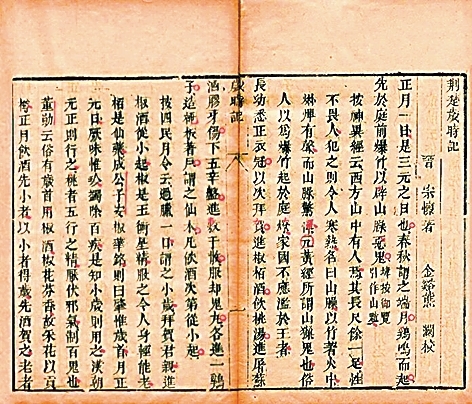 荆楚歲時記
晉 宗懍著 金谿熊 澗校
正月一日是三元之日也春秋謂之端月鷄鳴而起
先於庭前爆竹以辟山臊惡鬼 按御覽引作山魈
按神異經云西方山中有人焉其長尺餘一足性
不畏人犯之則令人寒熱名曰山臊以竹著火中
烞熚有聲而山臊驚憚元黃經所謂山𤢖鬼也俗
人以爲爆竹起於庭燎家國不應濫於王者
長幼悉正衣冠以次拜賀進椒栢酒飲桃湯進屠蘇
歲時記 一
酒膠牙餳下五辛盤進敷于散服却鬼丸各進一鷄
子造桃板著戶謂之仙木凡飲酒次第從小起
按四民月令云過臘一日謂之小歲拜賀君親進
椒酒從小起椒是玉衡星精服之令人身輕能老
栢是仙藥成公子安椒華銘則曰肇惟歲首月正
元日厥味惟珍蠲除百疾是知小歲則用之漢朝
元正則行之桃者五行之精厭伏邪氣制百鬼也
董勛云俗有歲首用椒酒椒花芬香故采花以貢
樽正月飲酒先小者以小者得歲先酒賀之老者